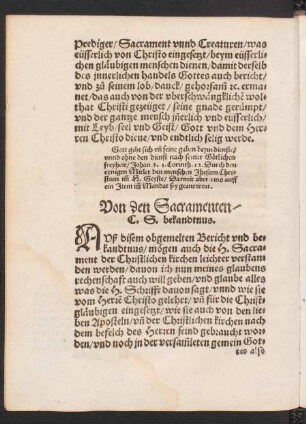 Prediger/ Sacrament vnnd Creaturen/ was
eüsserlich von Christo eingesetzt/ beym eüsserli-
chen gläubigen menschen dienen/ damit derselb
des jnnerlichen handels Gottes auch bericht/
vnd zů seinem lob/ danck/ gehorsam ꝛc. ermā-
net/ das auch von der vberschwängkliche wol-
that Christi gezeüget/ seine gnade gerümpt/
vnd der gantze mensch jn̄erlich vnd eüsserlich/
mit Leyb/ seel vnd Geist/ Gott vnd dem Her-
ren Christo diene/ vnd endtlich selig werde.
Gott gibt sich vn̄ seine gaben beym dienste/
vnnd ohne den dienst nach seiner Götlichen
freyheit/ Johan. 3. 1. Corinth. 12. Durch den
eynigen Mitler den menschen Jhesum Chri-
stum im̄ H. Geyste/ Darmit aber vns auff
ein Item im̄ Mandat sey geantwort.
Von den Sacramenten/
C. S. bekandtnus.
Auß disem obgemelten Bericht vnd be-
kandtnus/ mögen auch die H. Sacra-
ment der Christlichen kirchen leichter verstan
den werden/ dauon ich nun meines glaubens
rechenschafft auch will geben/ vnd glaube alles
was die H. Schrifft dauon sagt/ vnnd wie sie
vom Herrē Christo gelehrt/ vn̄ für die Christ-
gläubigen eingesetzt/ wie sie auch von den lieben
Aposteln/ vn̄ der Christlichen kirchen nach
dem befelch des Herren seind gebraucht wor
den/ vnd noch jn der versam̄leten gemein Got
tes also